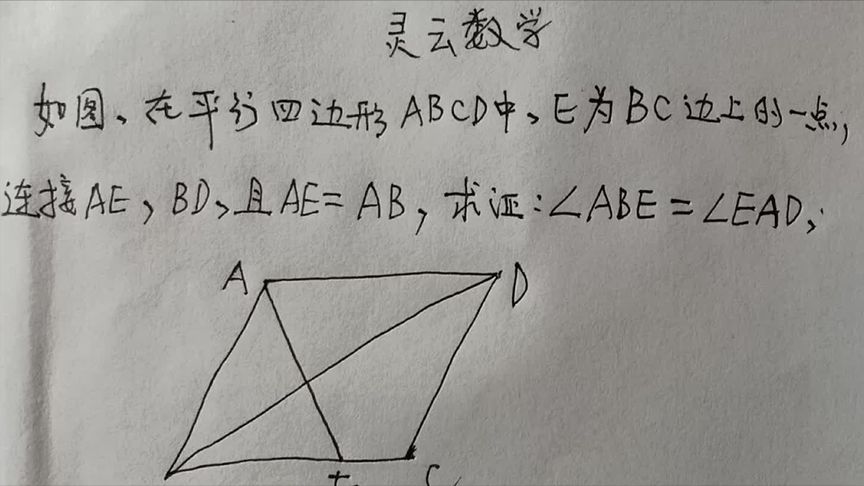 灵云数学
如图、在平行四边形ABCD中、E为BC边上的一点,
连接AE,BD、且AE=AB,求证:∠ABE=∠EAD,
A
D
C